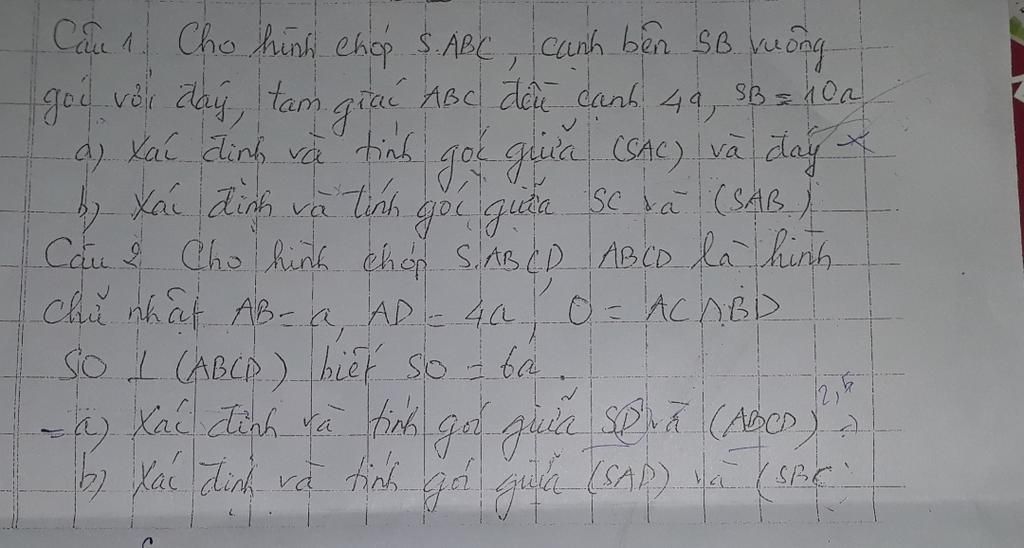 Câu 1. Cho hình chóp S.ABC, cạnh bên SB vuông
góc với đáy, tam giác ABC đều cạnh 4a, SB = 10a
a) Xác định và tính góc giữa (SAC) và đáy x
b) Xác định và tính góc giữa SC và (SAB)
Câu 2 Cho hình chóp S.ABCD, ABCD là hình
chữ nhật AB = a, AD = 4a, O = AC ∩ BD
SO ⊥ (ABCD) biết SO = 6a.
- a) Xác định và tính góc giữa SD và (ABCD)
b) Xác định và tính góc giữa (SAD) và (SBC